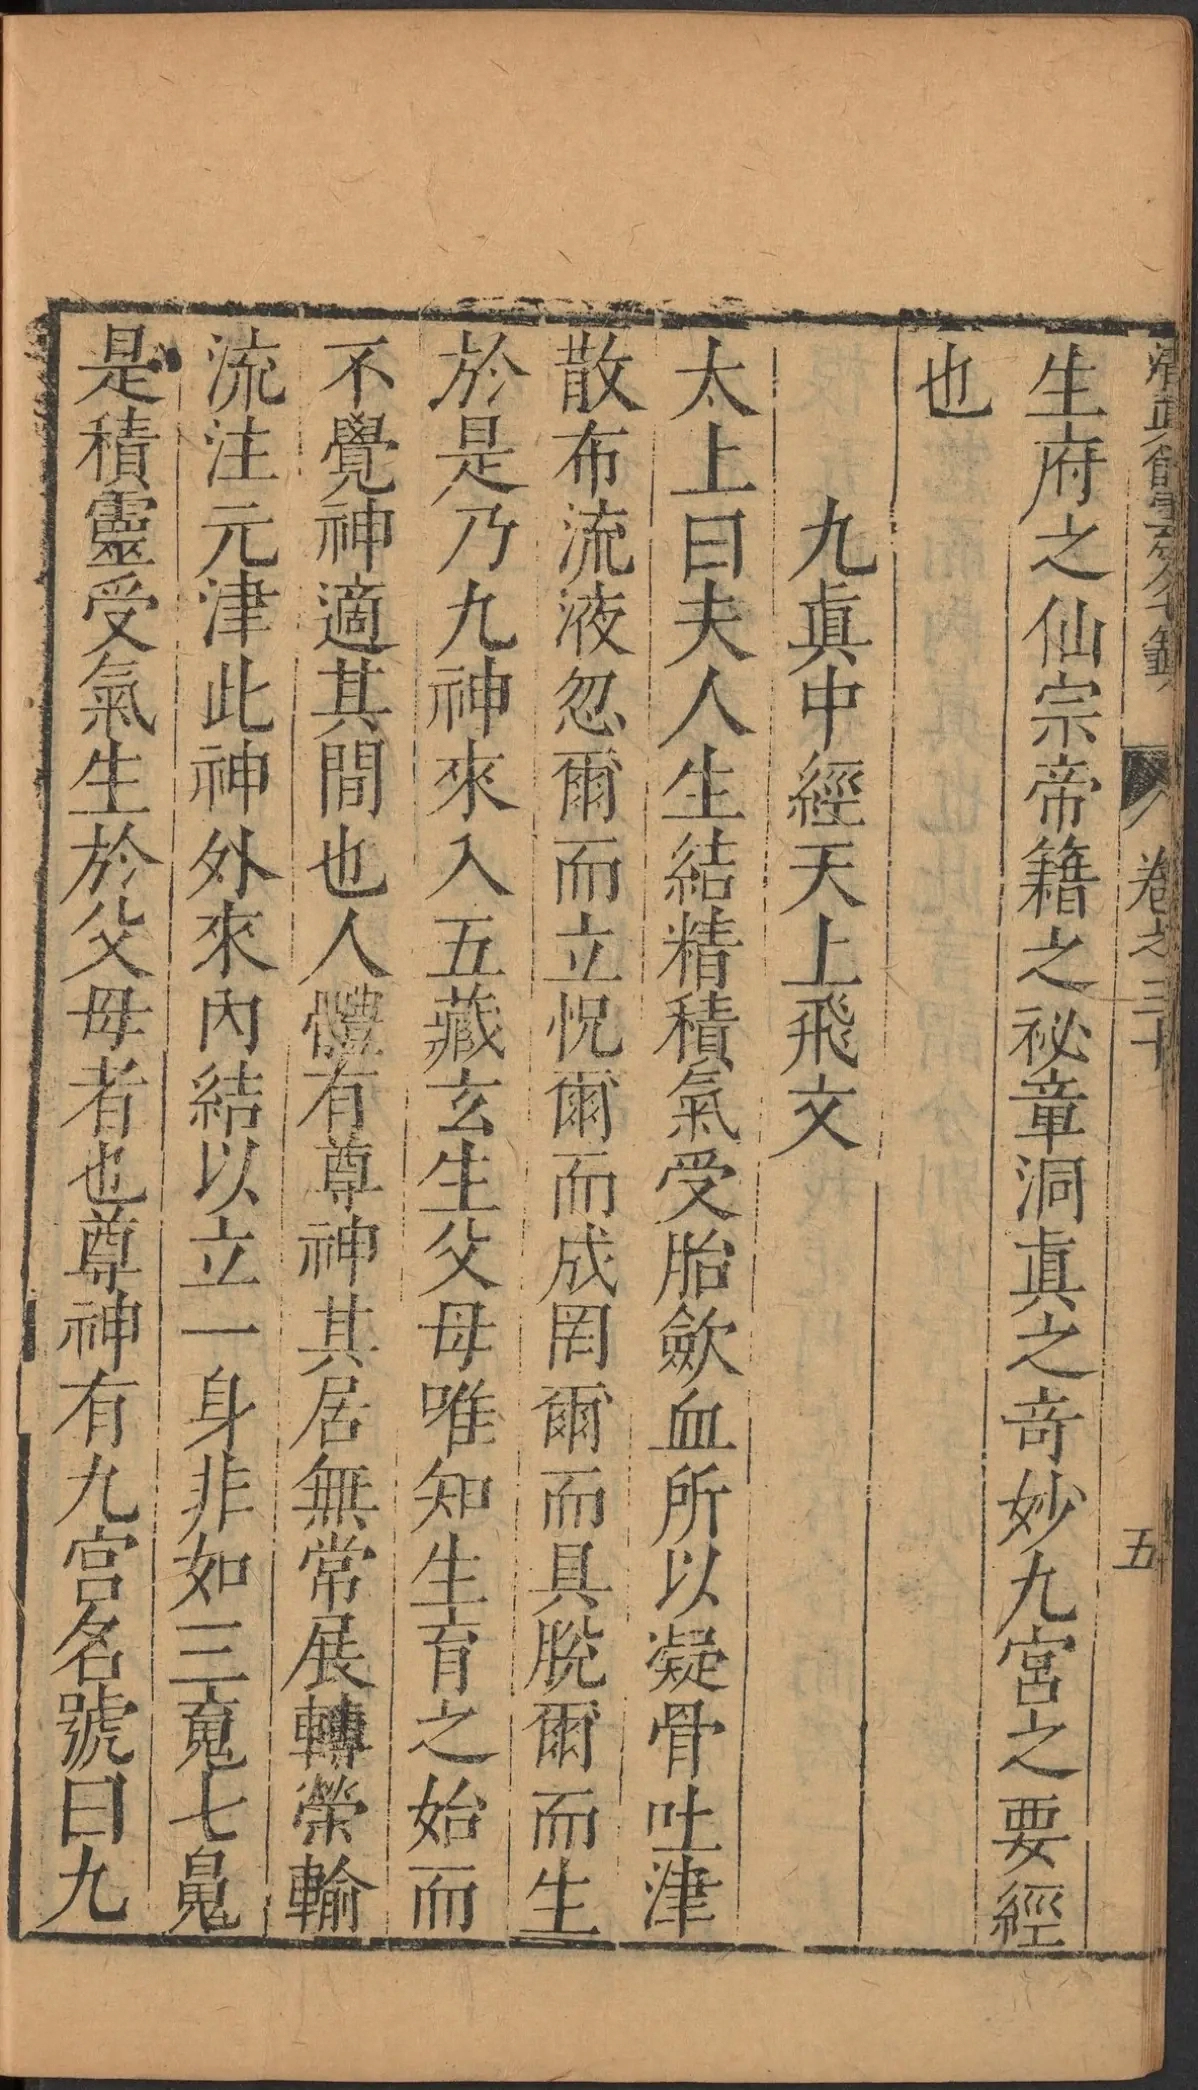 清真館雲笈七籤 卷之三十 五
生府之仙宗帝籍之祕章洞眞之奇妙九宮之要經
也
九眞中經天上飛文
太上曰夫人生結精積氣受胎歛血所以凝骨吐津
散布流液忽爾而立怳爾而成罔爾而具脫爾而生
於是乃九神來入五藏玄生父母唯知生育之始而
不覺神適其間也人體有尊神其居無常展轉榮輸
流注元津此神外來內結以立一身非如三䰟七䰟
是積靈受氣生於父母者也尊神有九宮名號曰九